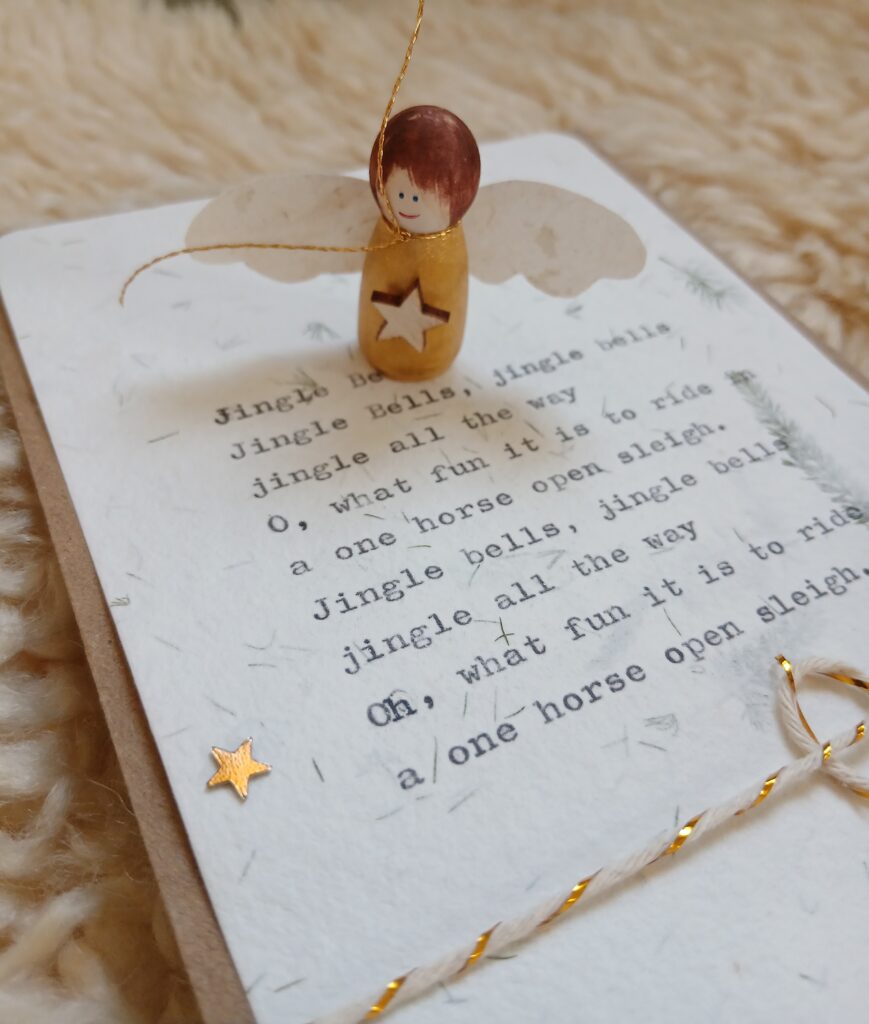 Jingle
Jingle Bells, jingle bells
jingle all the way
O, what fun it is to ride in
a one horse open sleigh.
Jingle bells, jingle bells
jingle all the way
Oh, what fun it is to ride
a one horse open sleigh.